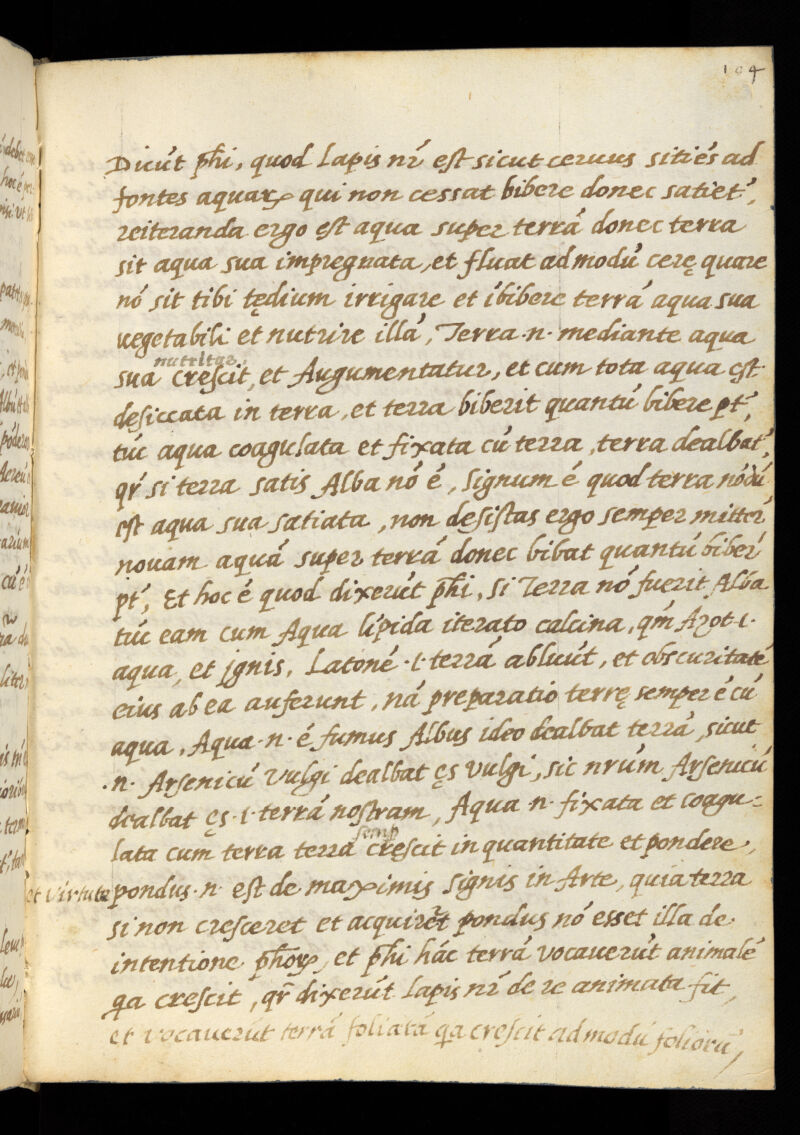 104
Dicu̅t ph̅i, quod Lapis nr̅ est sicut ceruus sitie̅s ad
fontes aquaꝝ qui non cessat bibere donec satiet᷑,
reiteranda ergo est aqua super terra̅ donec terra
sit aqua sua impregnata, et fluat ad modu̅ cerę quare
no̅ sit tibi tędium irrigare et i̅bibere terra̅ aqua sua
vegetabili et nutrire illa̅, Terra .n. mediante aqua
nutritur,
sua crescit, et Augumentatur, et cum tota aqua est
desiccata in terra, et terra biberit quantu̅ bibere pt̅,
tu̅c aqua coagulata et fixata cu̅ terra, terra dealbat᷑,
qr̅ si terra satis Alba no̅ e̅, signum e̅ quod terra no̅du̅
est aqua sua satiata, non desistas ergo semper mitter̅
nouam aqua̅ super terra̅ donec bibat quantu̅ biber̅
pt̅, Et hoc e̅ quod dixeru̅t ph̅i, si Terra no̅ fuerit Alba
tu̅c eam cum Aqua li̅pida iterato calcina, qm̅ Azot .i.
aqua, et jgnis, Latone̅ .i. terra̅ abluu̅t, et obscuritate̅
eius ab ea auferunt, na̅ preparatio terrę semper e̅ cu̅
aqua, Aqua .n. e̅ fumus Albus ideo dealbat terra̅, sicut
.n. Arsenicu̅ vulgi dealbat ęs vulgi, sic nr̅um Arsenicu̅
dealbat ęs .i. terra̅ nostram, Aqua .n. fixata et coagu-
semp̅
lata cum terra terra crescit in quantitate et pondere,
et virtute pondus .n. est de maximis signis in Arte, quia terra
si non cresceret et acquiret pondus no̅ esset illa de
intentione ph̅oꝝ, et ph̅i ha̅c terra̅ vocaueru̅t animale̅
qa crescit, qr̅ dixeru̅t Lapis nr̅ de re animata fit,
et vocaueru̅t terra̅ foliata̅ qa crescit ad modu̅ folioru̅,